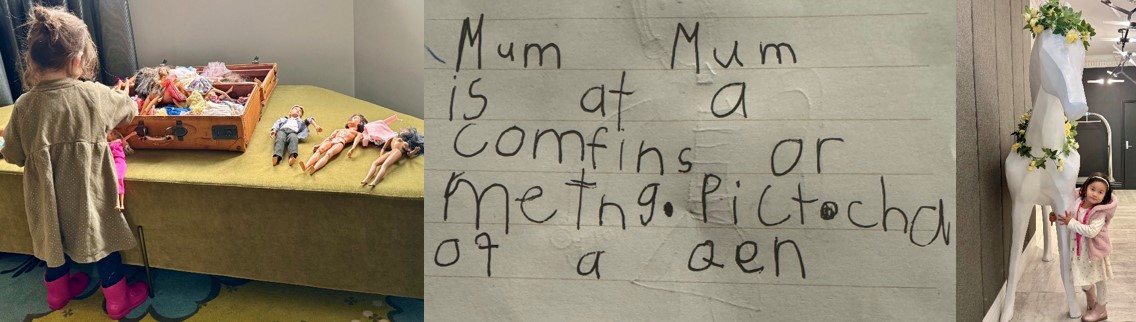 Mum Mum
is at a
comfins or
metng. Pictocha
of a aen